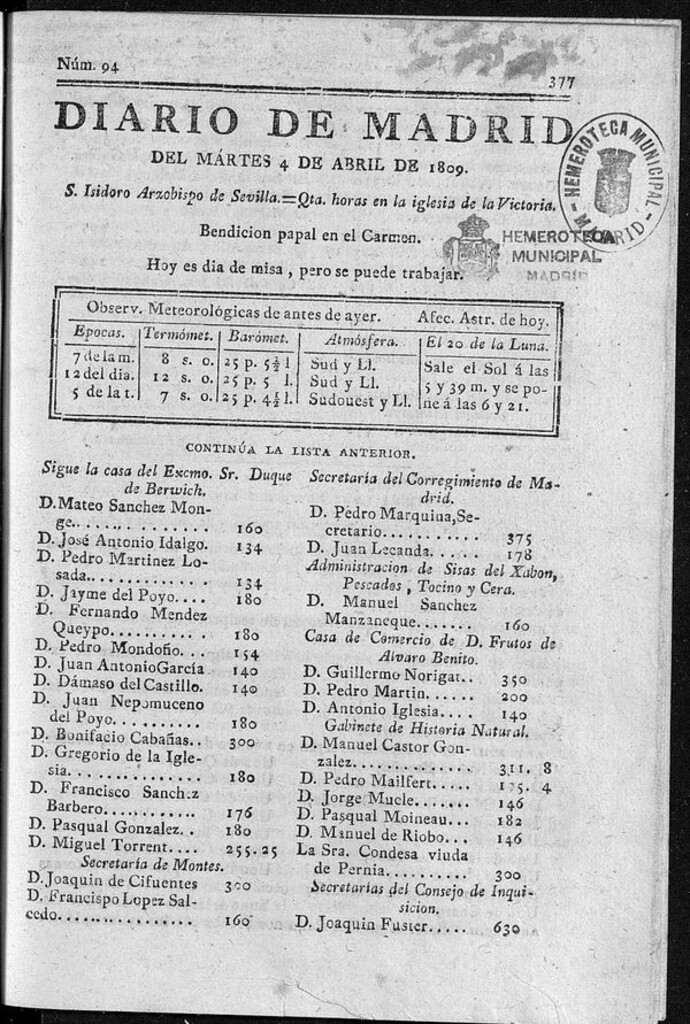 Núm. 94
377
DIARIO DE MADRID
DEL MÁRTES 4 DE ABRIL DE 1809.
S. Isidoro Arzobispo de Sevilla.=Qta. horas en la iglesia de la Victoria.
Bendicion papal en el Carmen.
Hoy es dia de misa, pero se puede trabajar.
HEMEROTECA MUNICIPAL
MADRID
HEMEROTECA
MUNICIPAL
MADRID
Observ. Meteorológicas de antes de ayer. Afec. Astr. de hoy.
Epocas. Termómet. Barómet. Atmósfera. El 20 de la Luna.
7 de la m. 8 s. o. 25 p. 5½ l Sud y Ll. Sale el Sol á las
12 del dia. 12 s. o. 25 p. 5 l. Sud y Ll. 5 y 39 m. y se po-
5 de la t. 7 s. o. 25 p. 4½ l. Sudouest y Ll. ne á las 6 y 21.
CONTINÚA LA LISTA ANTERIOR.
Sigue la casa del Excmo. Sr. Duque
de Berwich.
D. Mateo Sanchez Mon-
ge.............. 160
D. José Antonio Idalgo. 134
D. Pedro Martinez Lo-
sada............ 134
D. Jayme del Poyo.... 180
D. Fernando Mendez
Queypo.......... 180
D. Pedro Mondoño... 154
D. Juan Antonio García 140
D. Dámaso del Castillo. 140
D. Juan Nepomuceno
del Poyo.......... 180
D. Bonifacio Cabañas.. 300
D. Gregorio de la Igle-
sia.............. 180
D. Francisco Sanchez
Barbero........... 176
D. Pasqual Gonzalez.. 180
D. Miguel Torrent.... 255.25
Secretaría de Montes.
D. Joaquin de Cifuentes 300
D. Francispo Lopez Sal-
cedo................ 160
Secretaría del Corregimiento de Ma-
drid.
D. Pedro Marquina, Se-
cretario........... 375
D. Juan Lecanda..... 178
Administracion de Sisas del Xabon,
Pescados, Tocino y Cera.
D. Manuel Sanchez
Manzaneque....... 160
Casa de Comercio de D. Frutos de
Alvaro Benito.
D. Guillermo Norigat.. 350
D. Pedro Martin...... 200
D. Antonio Iglesia.... 140
Gabinete de Historia Natural.
D. Manuel Castor Gon-
zalez............. 311. 8
D. Pedro Mailfert..... 175. 4
D. Jorge Mucle....... 146
D. Pasqual Moineau... 182
D. Manuel de Riobo... 146
La Sra. Condesa viuda
de Pernia........... 300
Secretarías del Consejo de Inqui-
sicion.
D. Joaquin Fuster..... 630